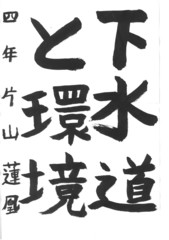 下水道
と環境
四年 片山蓮凰